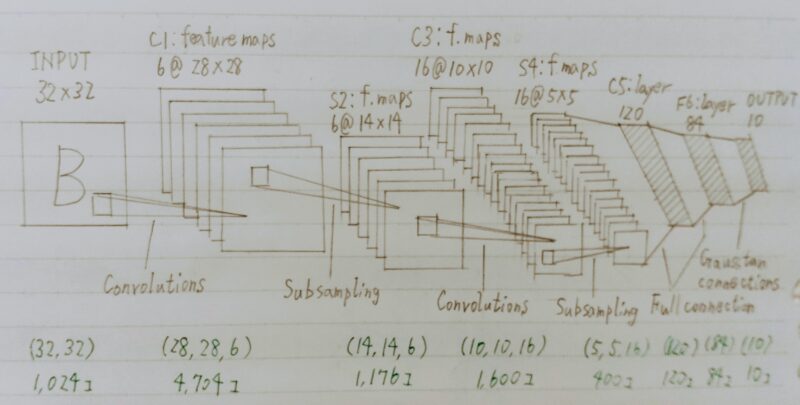 INPUT
32×32
C1: feature maps
6@ 28×28
S2: f.maps
6@14×14
C3: f.maps
16@10×10
S4: f.maps
16@5×5
C5: layer
120
F6: layer
84
OUTPUT
10
B
Convolutions
Subsampling
Convolutions
Subsampling
Full connection
Gaussian
connections
(32,32)
(28,28,6)
(14,14,6)
(10,10,16)
(5,5,16)
(120)
(84)
(10)
1,024コ
4,704コ
1,176コ
1,600コ
400コ
120コ
84コ
10コ